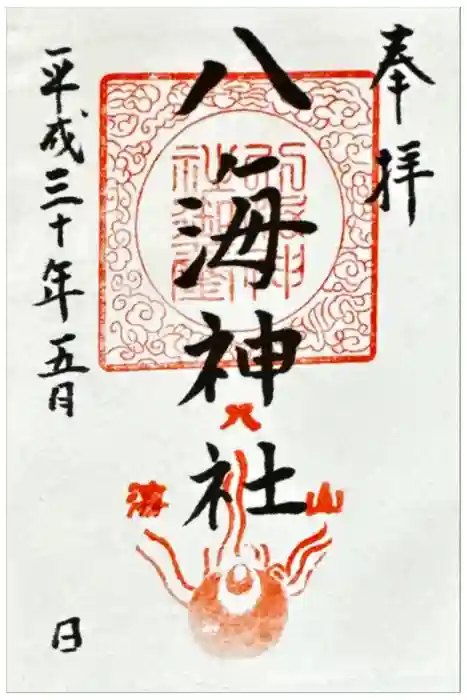 奉拝
八海神社
八
山
海
平成三十年五月 日